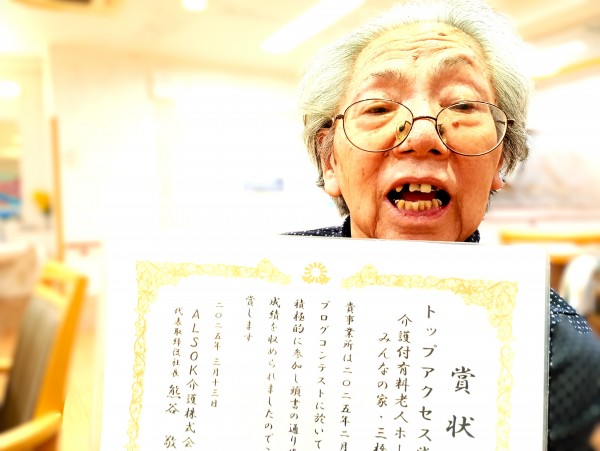 賞状
トップアクセス賞
介護付有料老人ホー
みんなの家・三橋
貴事業所は二〇二五年二月
ブログコンテストに於いて
積極的に参加し頭書の通り
成績を収められましたので
賞します
二〇二五年三月十三日
ALSOK介護株式会
代表取締役社長 熊谷 敬